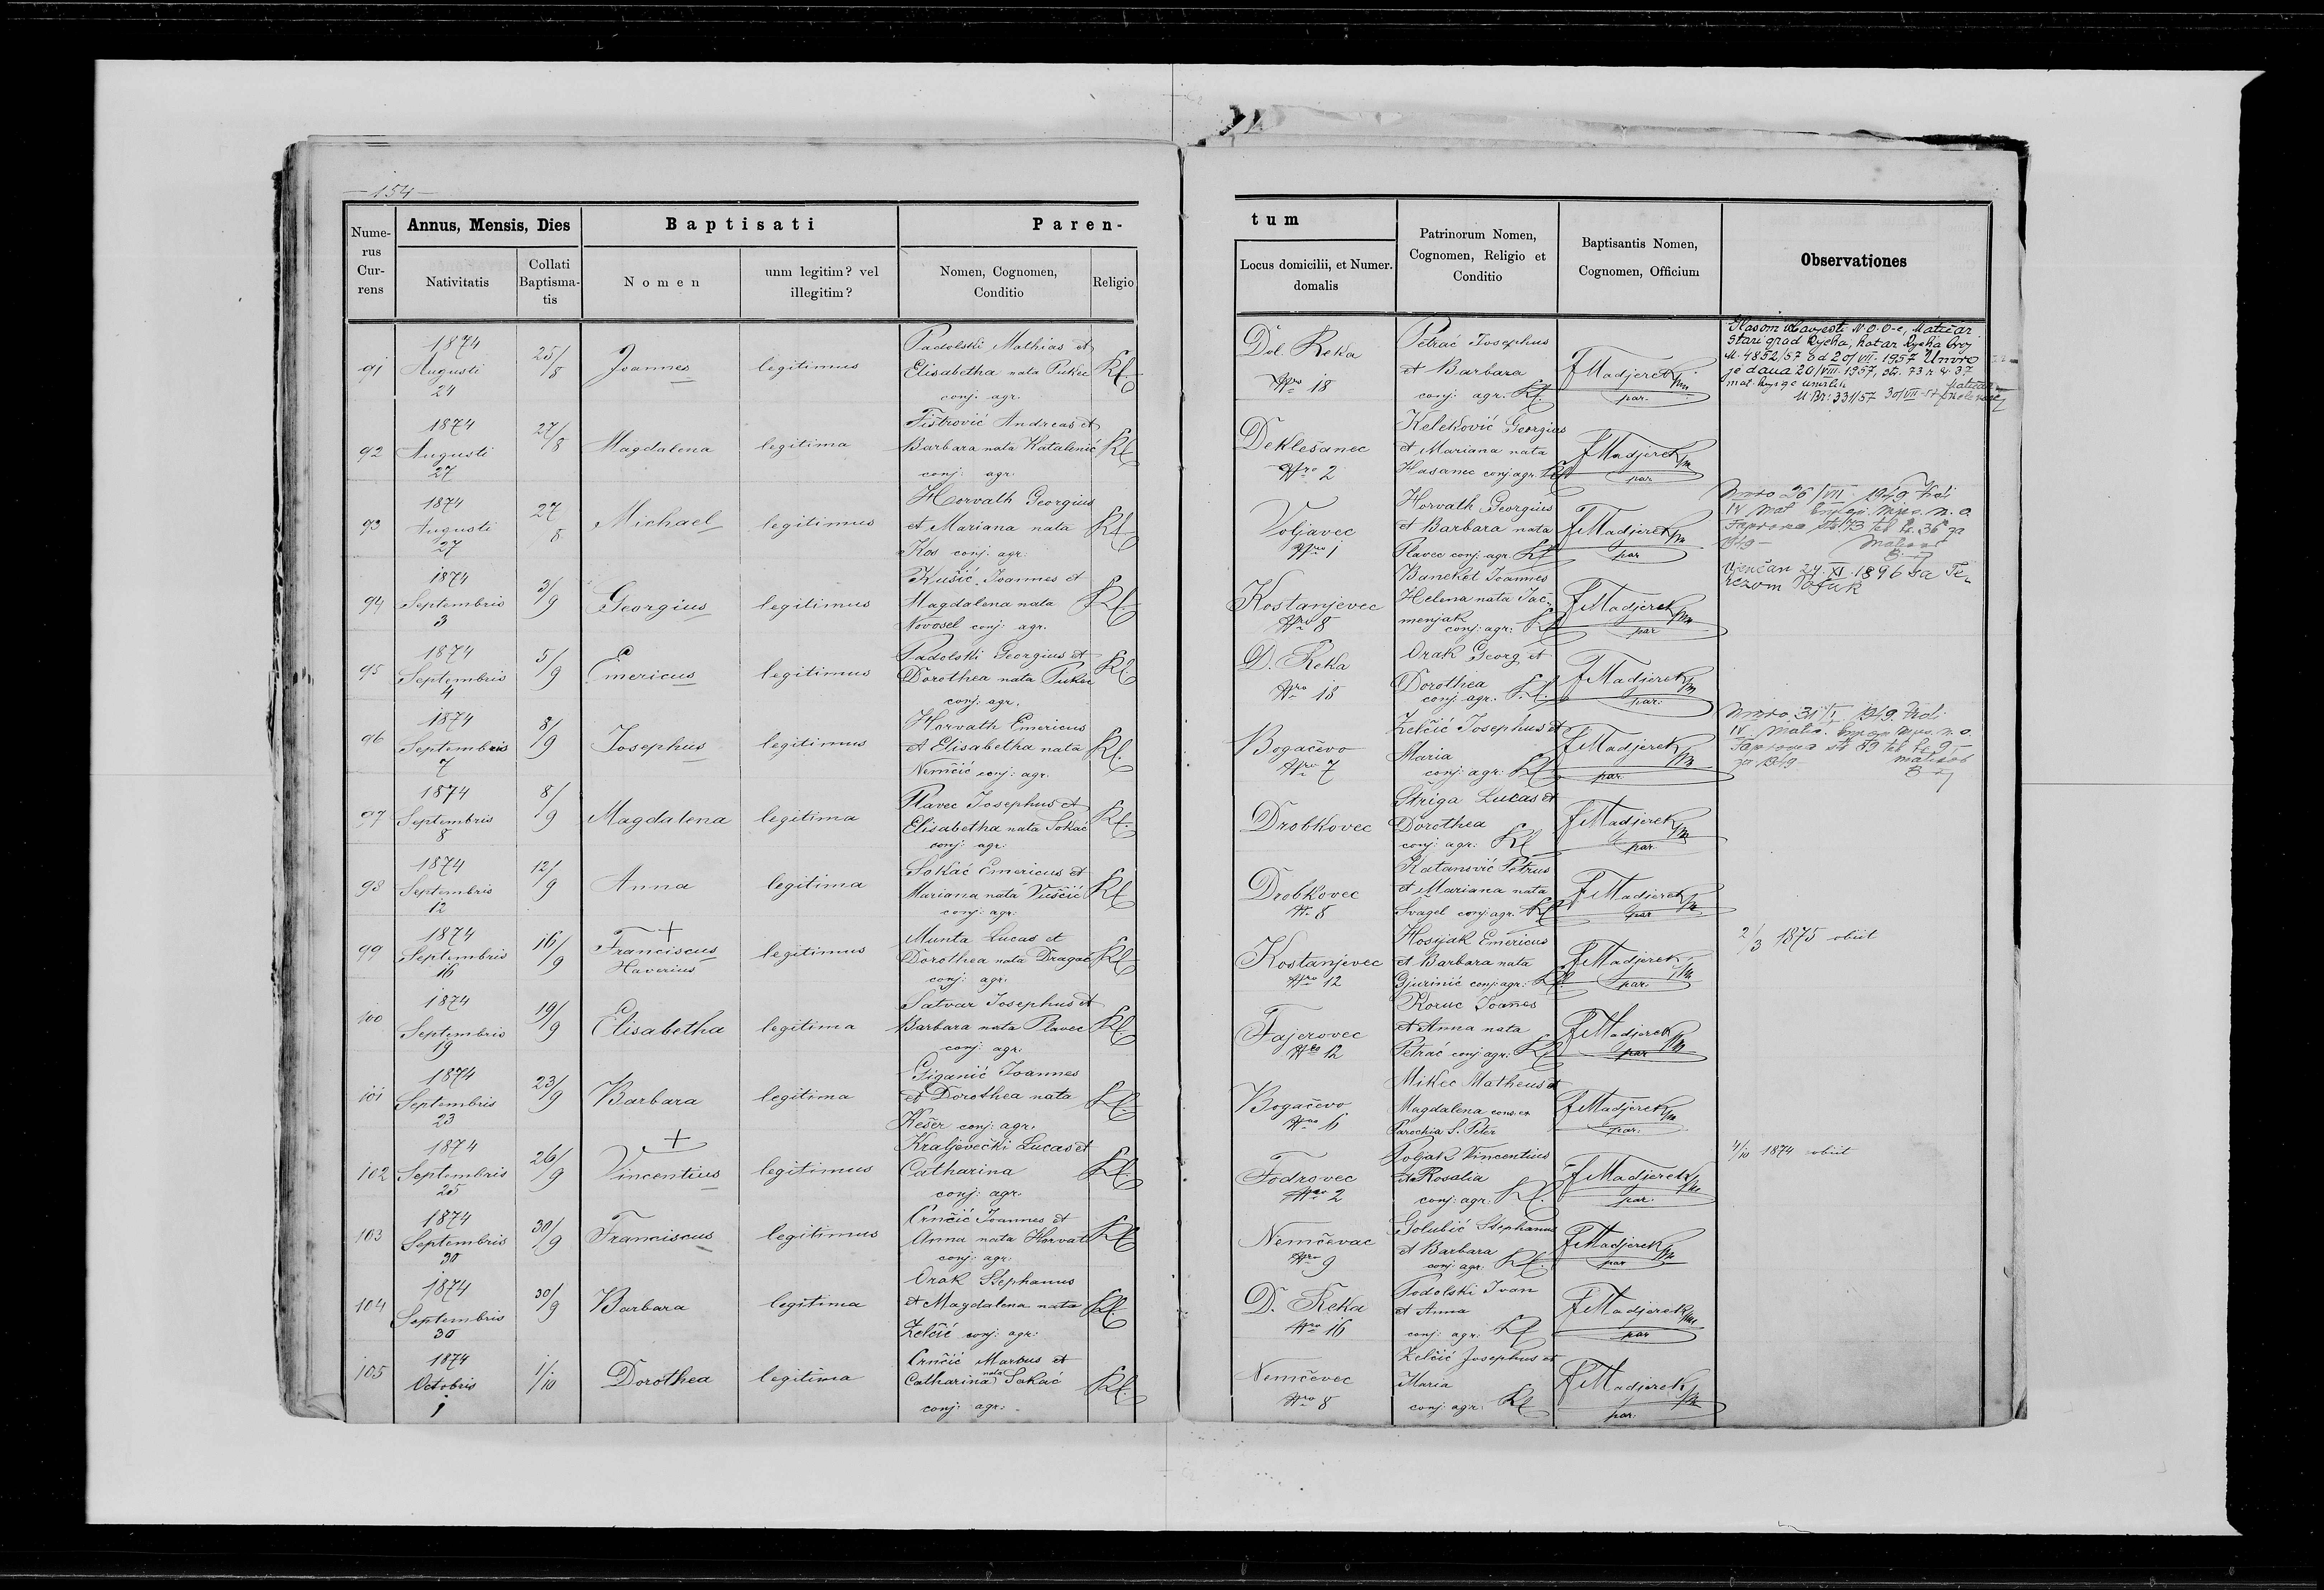 — 154 —
Annus, Mensis, Dies
Baptisati
Paren-
tum
Nume-
rus
Cur-
rens
Nativitatis
Collati
Baptisma-
tis
Nomen
unm legitim? vel
illegitim?
Nomen, Cognomen,
Conditio
Religio
Locus domicilii, et Numer.
domalis
Patrinorum Nomen,
Cognomen, Religio et
Conditio
Baptisantis Nomen,
Cognomen, Officium
Observationes
91 1874 Augusti 24 25/8 Joannes legitimus
Padolski Mathias et
Elisabetha nata Pukec
conj. agr.
Dol. Reka Nro 18
Petrać Josephus
et Barbara
conj. agr.
F Madjerek par.
Stari grad Rijeka, kotar Rijeka broj
4852/57 od 20/VII. 1957 Umro
je dana 20/VIII. 1957, str. 73 r. br. 37
331/57
92 1874 Augusti 27 27/8 Magdalena legitima
Fistrović Andreas et
Barbara nata Katalenić
conj. agr.
Deklešanec Nro 2
Keleković Georgius
et Mariana nata
Hasanec conj agr.
F Madjerek par
93 1874 Augusti 27 27/8 Michael legitimus
Horvath Georgius
et Mariana nata
Kos conj. agr.
Voljavec Nro 1
Horvath Georgius
et Barbara nata
Plavec conj. agr.
F Madjerek par
Umro 26/VII. 1949
94 1874 Septembris 3 3/9 Georgius legitimus
Kušić Joannes et
Magdalena nata
Novosel conj. agr.
Kostanjevec Nro 8
Banekel Joannes
Helena nata Jac-
menjak
conj. agr.
F Madjerek par
Vjenčan 24. XI. 1896 sa Te-
rezom
95 1874 Septembris 4 5/9 Emericus legitimus
Padolski Georgius et
Dorothea nata Pukec
conj. agr.
D. Reka Nro 18
Orak Georg. et
Dorothea
conj. agr.
F Madjerek par.
96 1874 Septembris 7 8/9 Josephus legitimus
Horvath Emericus
et Elisabetha nata
Nemčić conj. agr.
Bogačevo Nro 7
Zelčić Josephus et
Maria
conj. agr.
F Madjerek par.
Umro 31/I. 1949.
97 1874 Septembris 8 8/9 Magdalena legitima
Plavec Josephus et
Elisabetha nata Sokač
conj. agr.
Drobkovec
Striga Lucas et
Dorothea
conj. agr.
F Madjerek par.
98 1874 Septembris 12 12/9 Anna legitima
Sokać Emericus et
Mariana nata Vuščić
conj. agr.
Drobkovec N. 8
Katanović Petrus
et Mariana nata
Švagel conj agr.
F Madjerek par
99 1874 Septembris 16 16/9 + Franciscus
Haverius legitimus
Munta Lucas et
Dorothea nata Dragac
conj. agr.
Kostanjevec Nro 12
Hosijak Emericus
et Barbara nata
Gjurinić conj. agr.
F Madjerek par.
2/3 1875 obiit
100 1874 Septembris 19 19/9 Elisabetha legitima
Satvar Josephus et
Barbara nata Plavec
conj. agr.
Fajerovec Nro 12
Koruc Joannes
et Anna nata
Petrać conj agr.
F Madjerek par
101 1874 Septembris 23 23/9 Barbara legitima
Giganić Joannes
et Dorothea nata
Kešer conj. agr.
Bogačevo Nro 6
Mikec Matheus et
Magdalena cons. ex
Parochia S. Peter
F Madjerek par.
102 1874 Septembris 25 26/9 + Vincentius legitimus
Kraljevečki Lucas et
Catharina
conj. agr.
Fodrovec Nro 2
Poljak Vincentius
et Rosalia
conj. agr.
F Madjerek par.
4/10 1874 obiit
103 1874 Septembris 30 30/9 Franciscus legitimus
Crnčić Joannes et
Anna nata Horvat
conj. agr.
Nemčevac Nro 9
Golubić Stephanus
et Barbara
conj agr.
F Madjerek par
104 1874 Septembris 30 30/9 Barbara legitima
Orak Stephanus
et Magdalena nata
Zelčić conj. agr.
D. Reka Nro 16
Podolski Ivan
et Anna
conj. agr.
F Madjerek par
105 1874 Octobris 1 1/10 Dorothea legitima
Crnčić Marcus et
Catharina nata Sakać
conj. agr.
Nemčevec Nro 8
Zelčić Josephus et
Maria
conj. agr.
F Madjerek par.